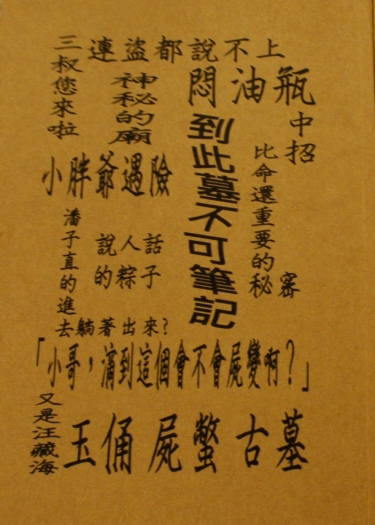 三叔您來啦
連盜都說不上
神秘的廟
悶油瓶
中招
到此墓不可筆記
比命還重要的秘密
小胖爺遇險
說人話
的粽子
潘子直的進
去躺著出來？
「小哥，滴到這個會不會屍變啊？」
又是汪藏海
玉俑屍蟞古墓